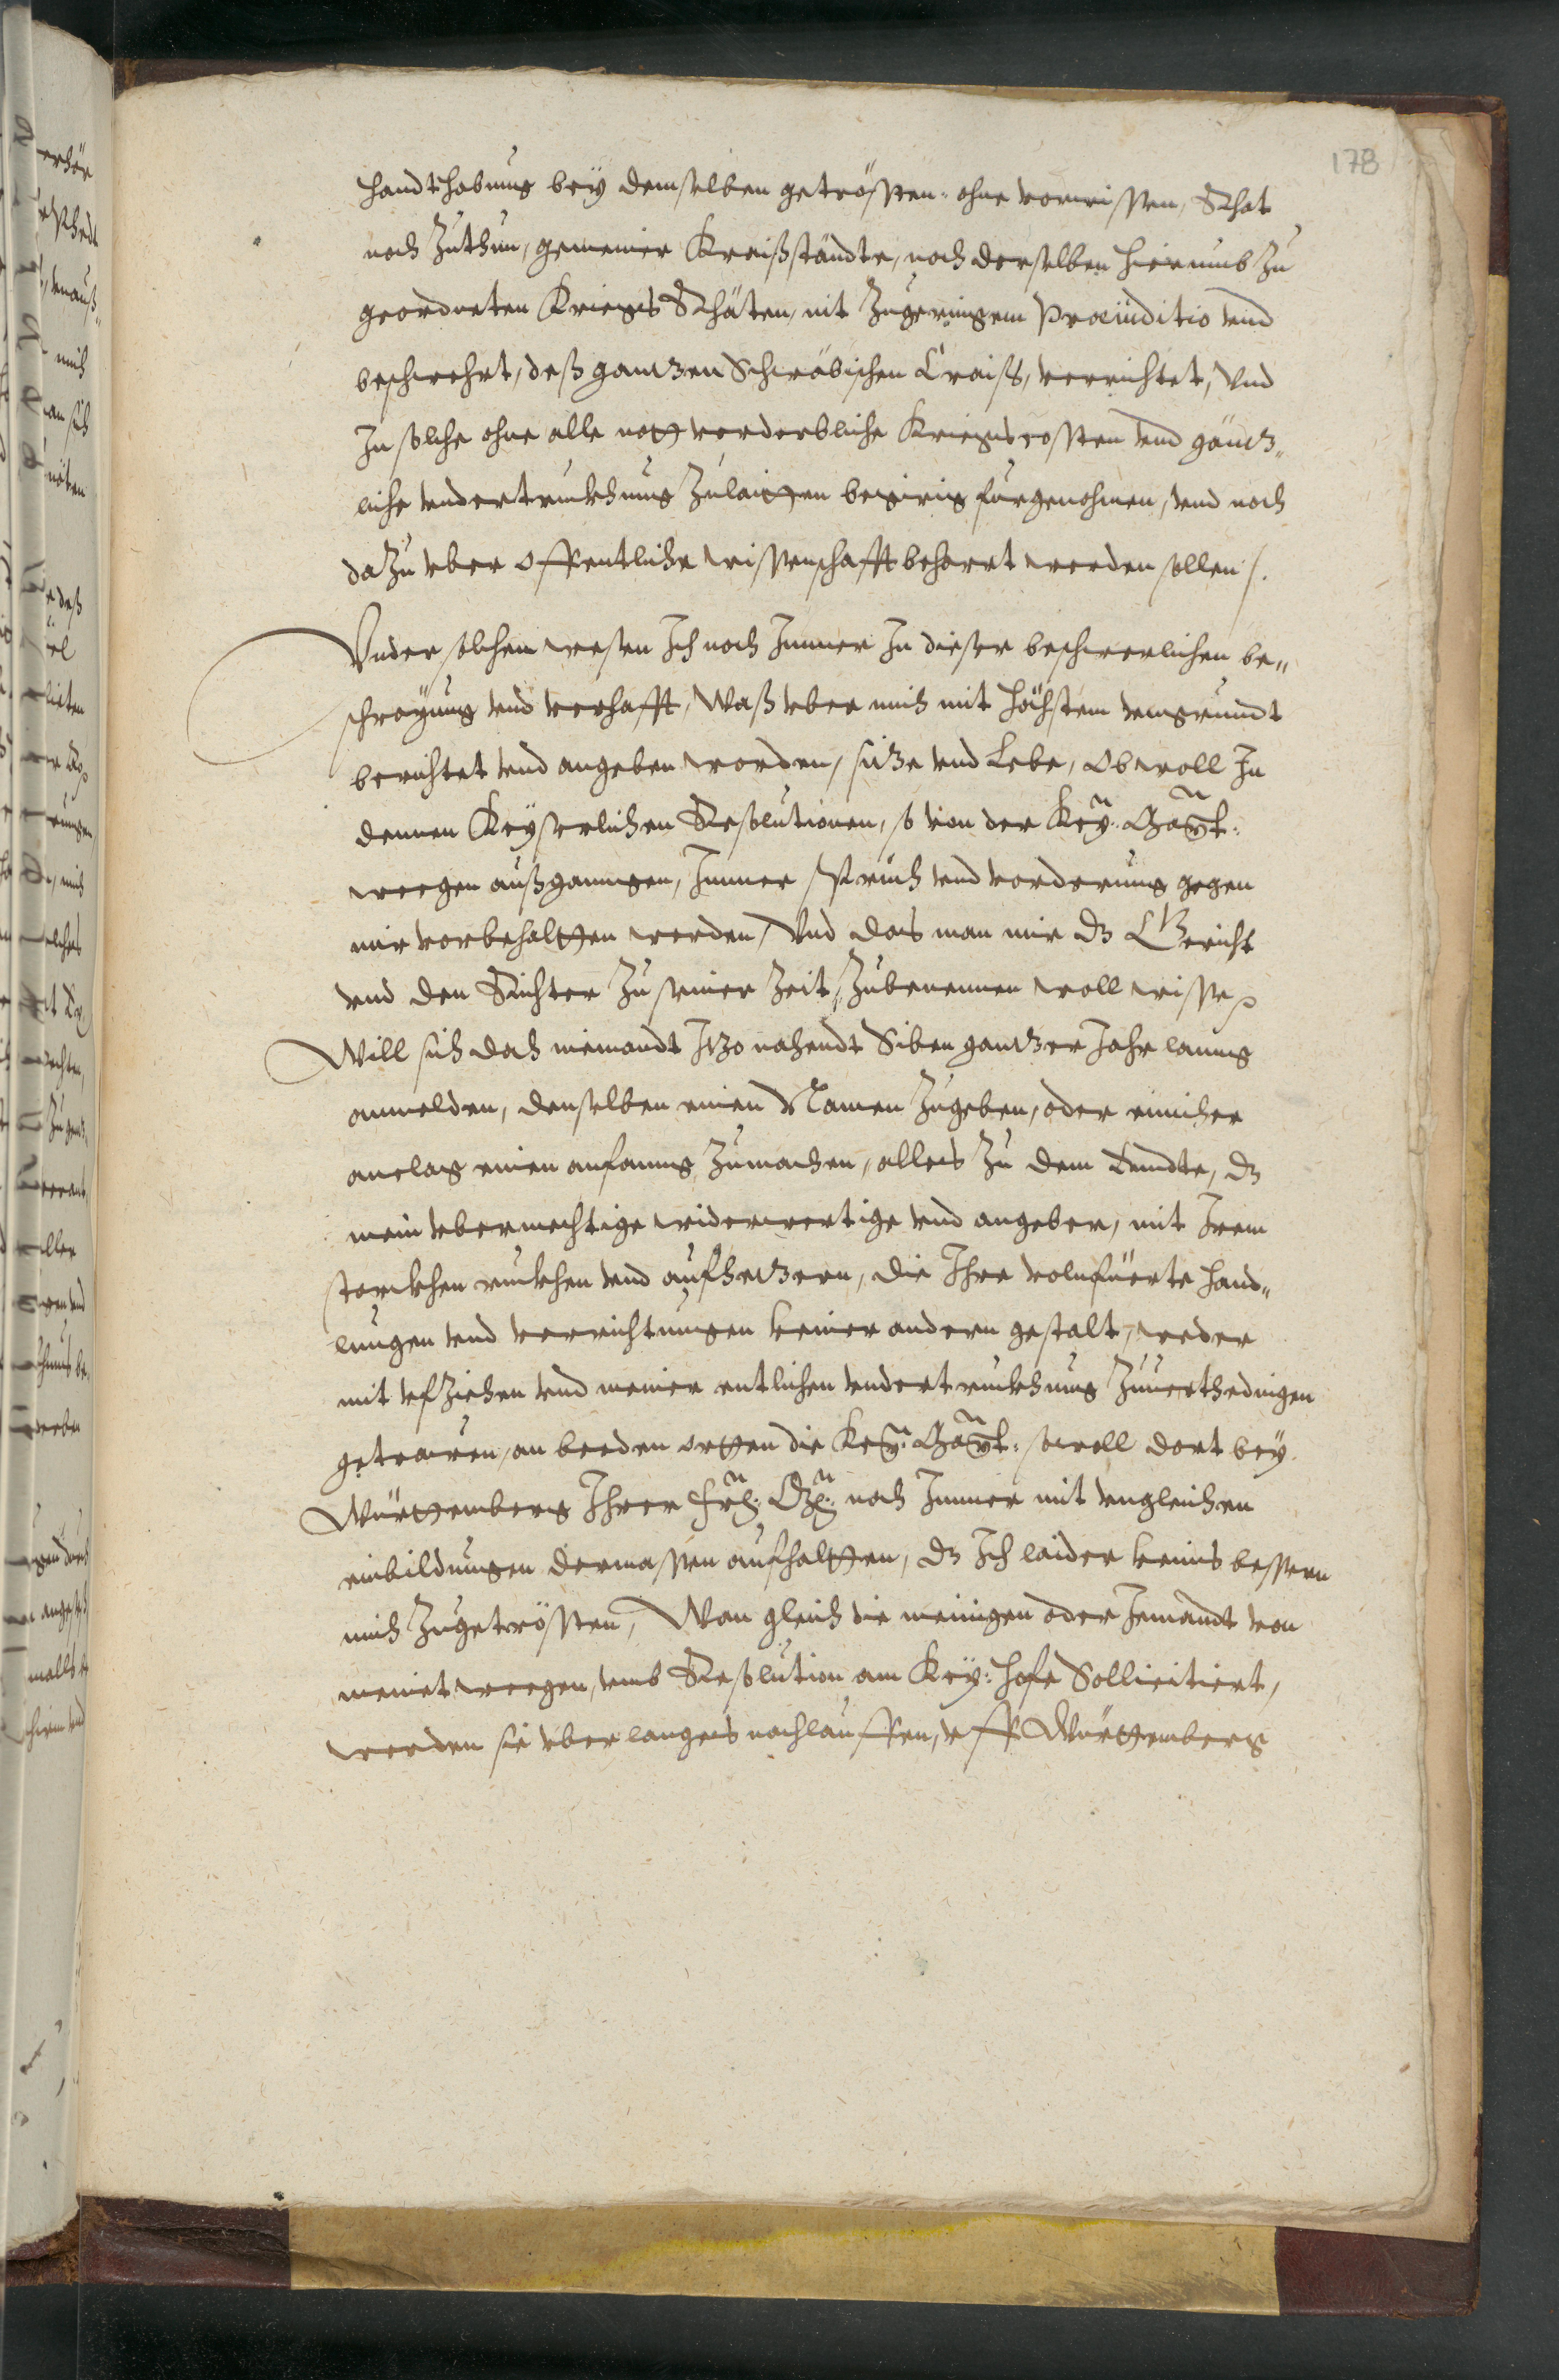 178
handthabung bey demselben getrösten, ohne vorwissen, Rhat
noch Zuthun, gemeiner Kraißständte, noch derselben hierumb zu
geordneten Kriegs Rhäten, nit Zugeringem Præiuditio vnd
beschwehrt, deß gantzen Schwäbischen Craiß, verrichtet, Vnd
In solche ohne alle noth verderbliche Kriegscosten vnd gäntz„
liche vndertruckhung Zulaithen begirig fürgenohmen, vnd noch
dazu vber offentliche wissenschafft beharrt werden sollen /.
Vnder solchem wesen Ich noch Immer In dieser beschwerlichen be„
schreyung vnd verhafft, Waß vber mich mit höchstem vngrundt
berichtet vnd angeben worden, sitze vnd Lebe, Obwoll In
dennen Keyserlichen Resolutionen, so von der Key: May:t:
wegen außgangen, Immer spruch vnd vorderung gegen
mir vorbehalthen werden, Vnd das man mir dz Gericht
vnd den Richter Zu seiner Zeit, Zubenennen woll wisse,
Will sich doch niemandt Itzo nahendt Siben gantzer Jahr lanng
anmelden, denselben einen Namen Zugeben, oder einicher
anclag einen anfanng Zumachen, alles Zu dem Enndte, dz
mein vbermechtige widerwertige vnd angeber, mit Irem
starckhen ruckhen vnd aufhetzern, die Ihre volnfüerte hand„
lungen vnd verrichtungen keiner andern gestalt, weder
mit vfziehen vnd meiner entlichen vndertruckhung Zuuerthedingen
getrauwen, an beeden orthen die Key: May:t: sowoll dort bey
Würthemberg Ihrer Frl: Gn: noch Immer mit vngleichen
einbildungen dermassen aufhalthen, dz Ich laider keins bessern
mich Zugetrösten, Wan gleich die meinigen oder Jemandt von
meinet wegen, vmb Resolution am Key: hofe Sollicitiert,
werden sie vber langes nachlauffen, vff Würthemberg